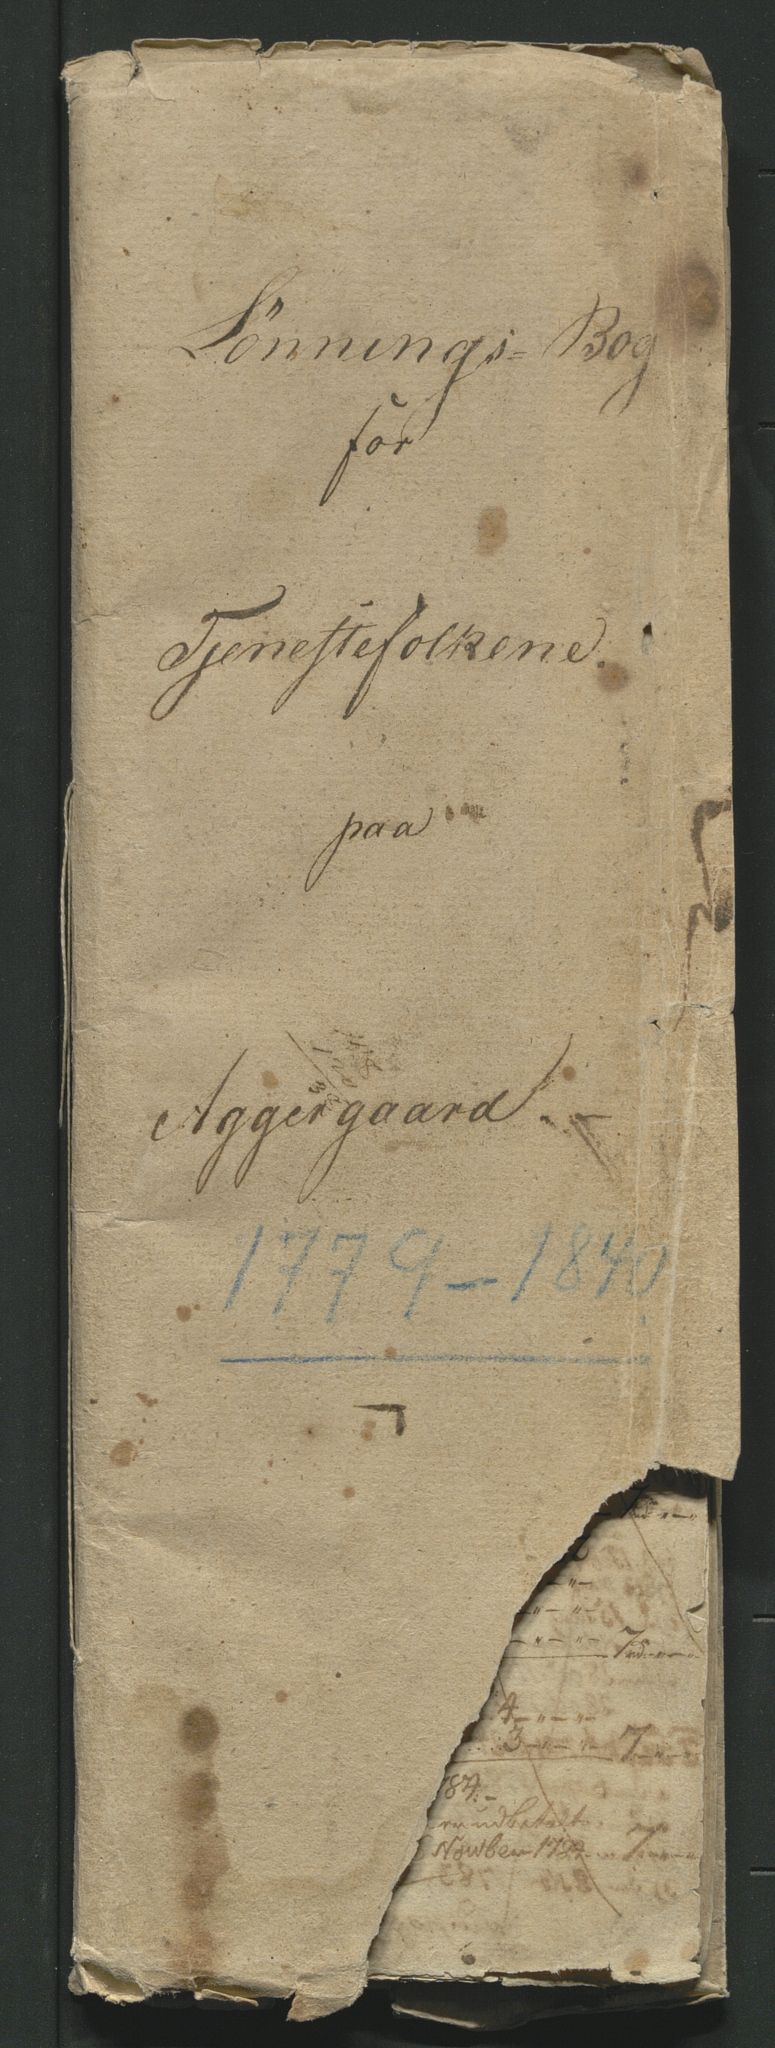 Lönnings- Bog
för
Tjenestefolkene.
paa
Aggergaard.-
1779-1840
7
4
3 7
84.-
udbetalt
Nowber 17
783